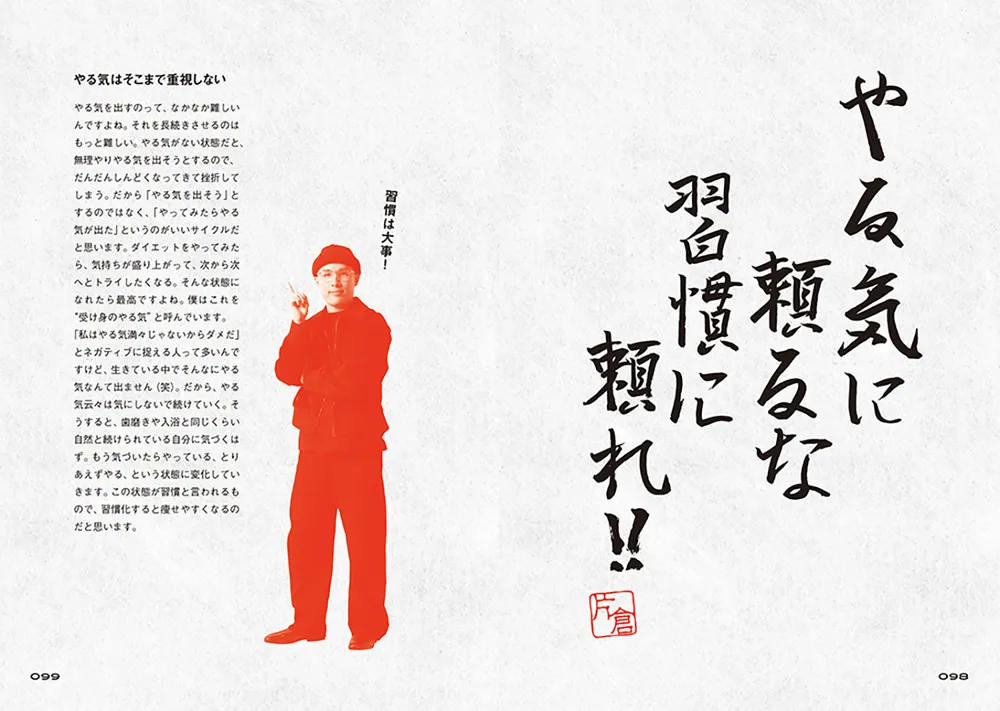 やる気に
頼るな
習慣に
頼れ!!
片倉
098
やる気はそこまで重視しない
やる気を出すのって、なかなか難しい
んですよね。それを長続きさせるのは
もっと難しい。やる気がない状態だと、
無理やりやる気を出そうとするので、
だんだんしんどくなってきて挫折して
しまう。だから「やる気を出そう」と
するのではなく、「やってみたらやる
気が出た」というのがいいサイクルだ
と思います。ダイエットをやってみた
ら、気持ちが盛り上がって、次から次
へとトライしたくなる。そんな状態に
なれたら最高ですよね。僕はこれを
“受け身のやる気”と呼んでいます。
「私はやる気満々じゃないからダメだ」
とネガティブに捉える人って多いんで
すけど、生きている中でそんなにやる
気なんて出ません(笑)。だから、やる
気云々は気にしないで続けていく。そ
うすると、歯磨きや入浴と同じくらい
自然と続けられている自分に気づくは
ず。もう気づいたらやっている、とり
あえずやる、という状態に変化してい
きます。この状態が習慣と言われるも
ので、習慣化すると痩せやすくなるの
だと思います。
習慣は大事!
099